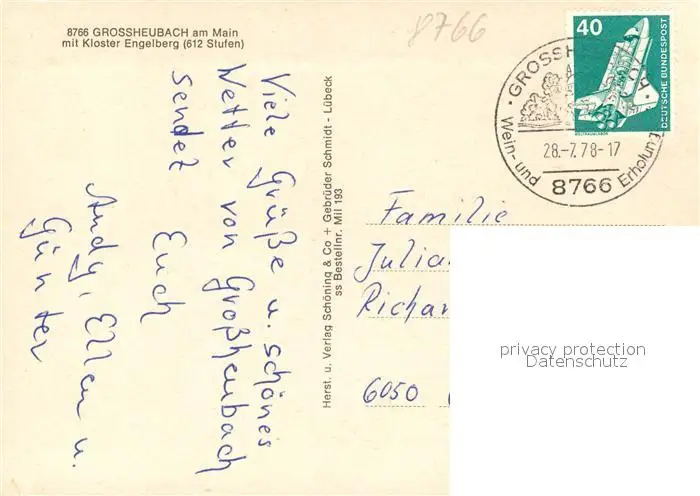 8766 GROSSHEUBACH am Main
mit Kloster Engelberg (612 Stufen)
8766
40
DEUTSCHE BUNDESPOST
WELTRAUMLABOR
GROSSH
28.-7.78-17
Wein- und Erholun
8766
Viele Grüße u. schönes
Wetter von Großheubach
sendet Euch
Andy, Ellen u.
Günter
Herst. u. Verlag Schöning & Co + Gebrüder Schmidt - Lübeck
ss Bestellnr. Mil 193
Familie
Julia
Richar
6050
privacy protection
Datenschutz